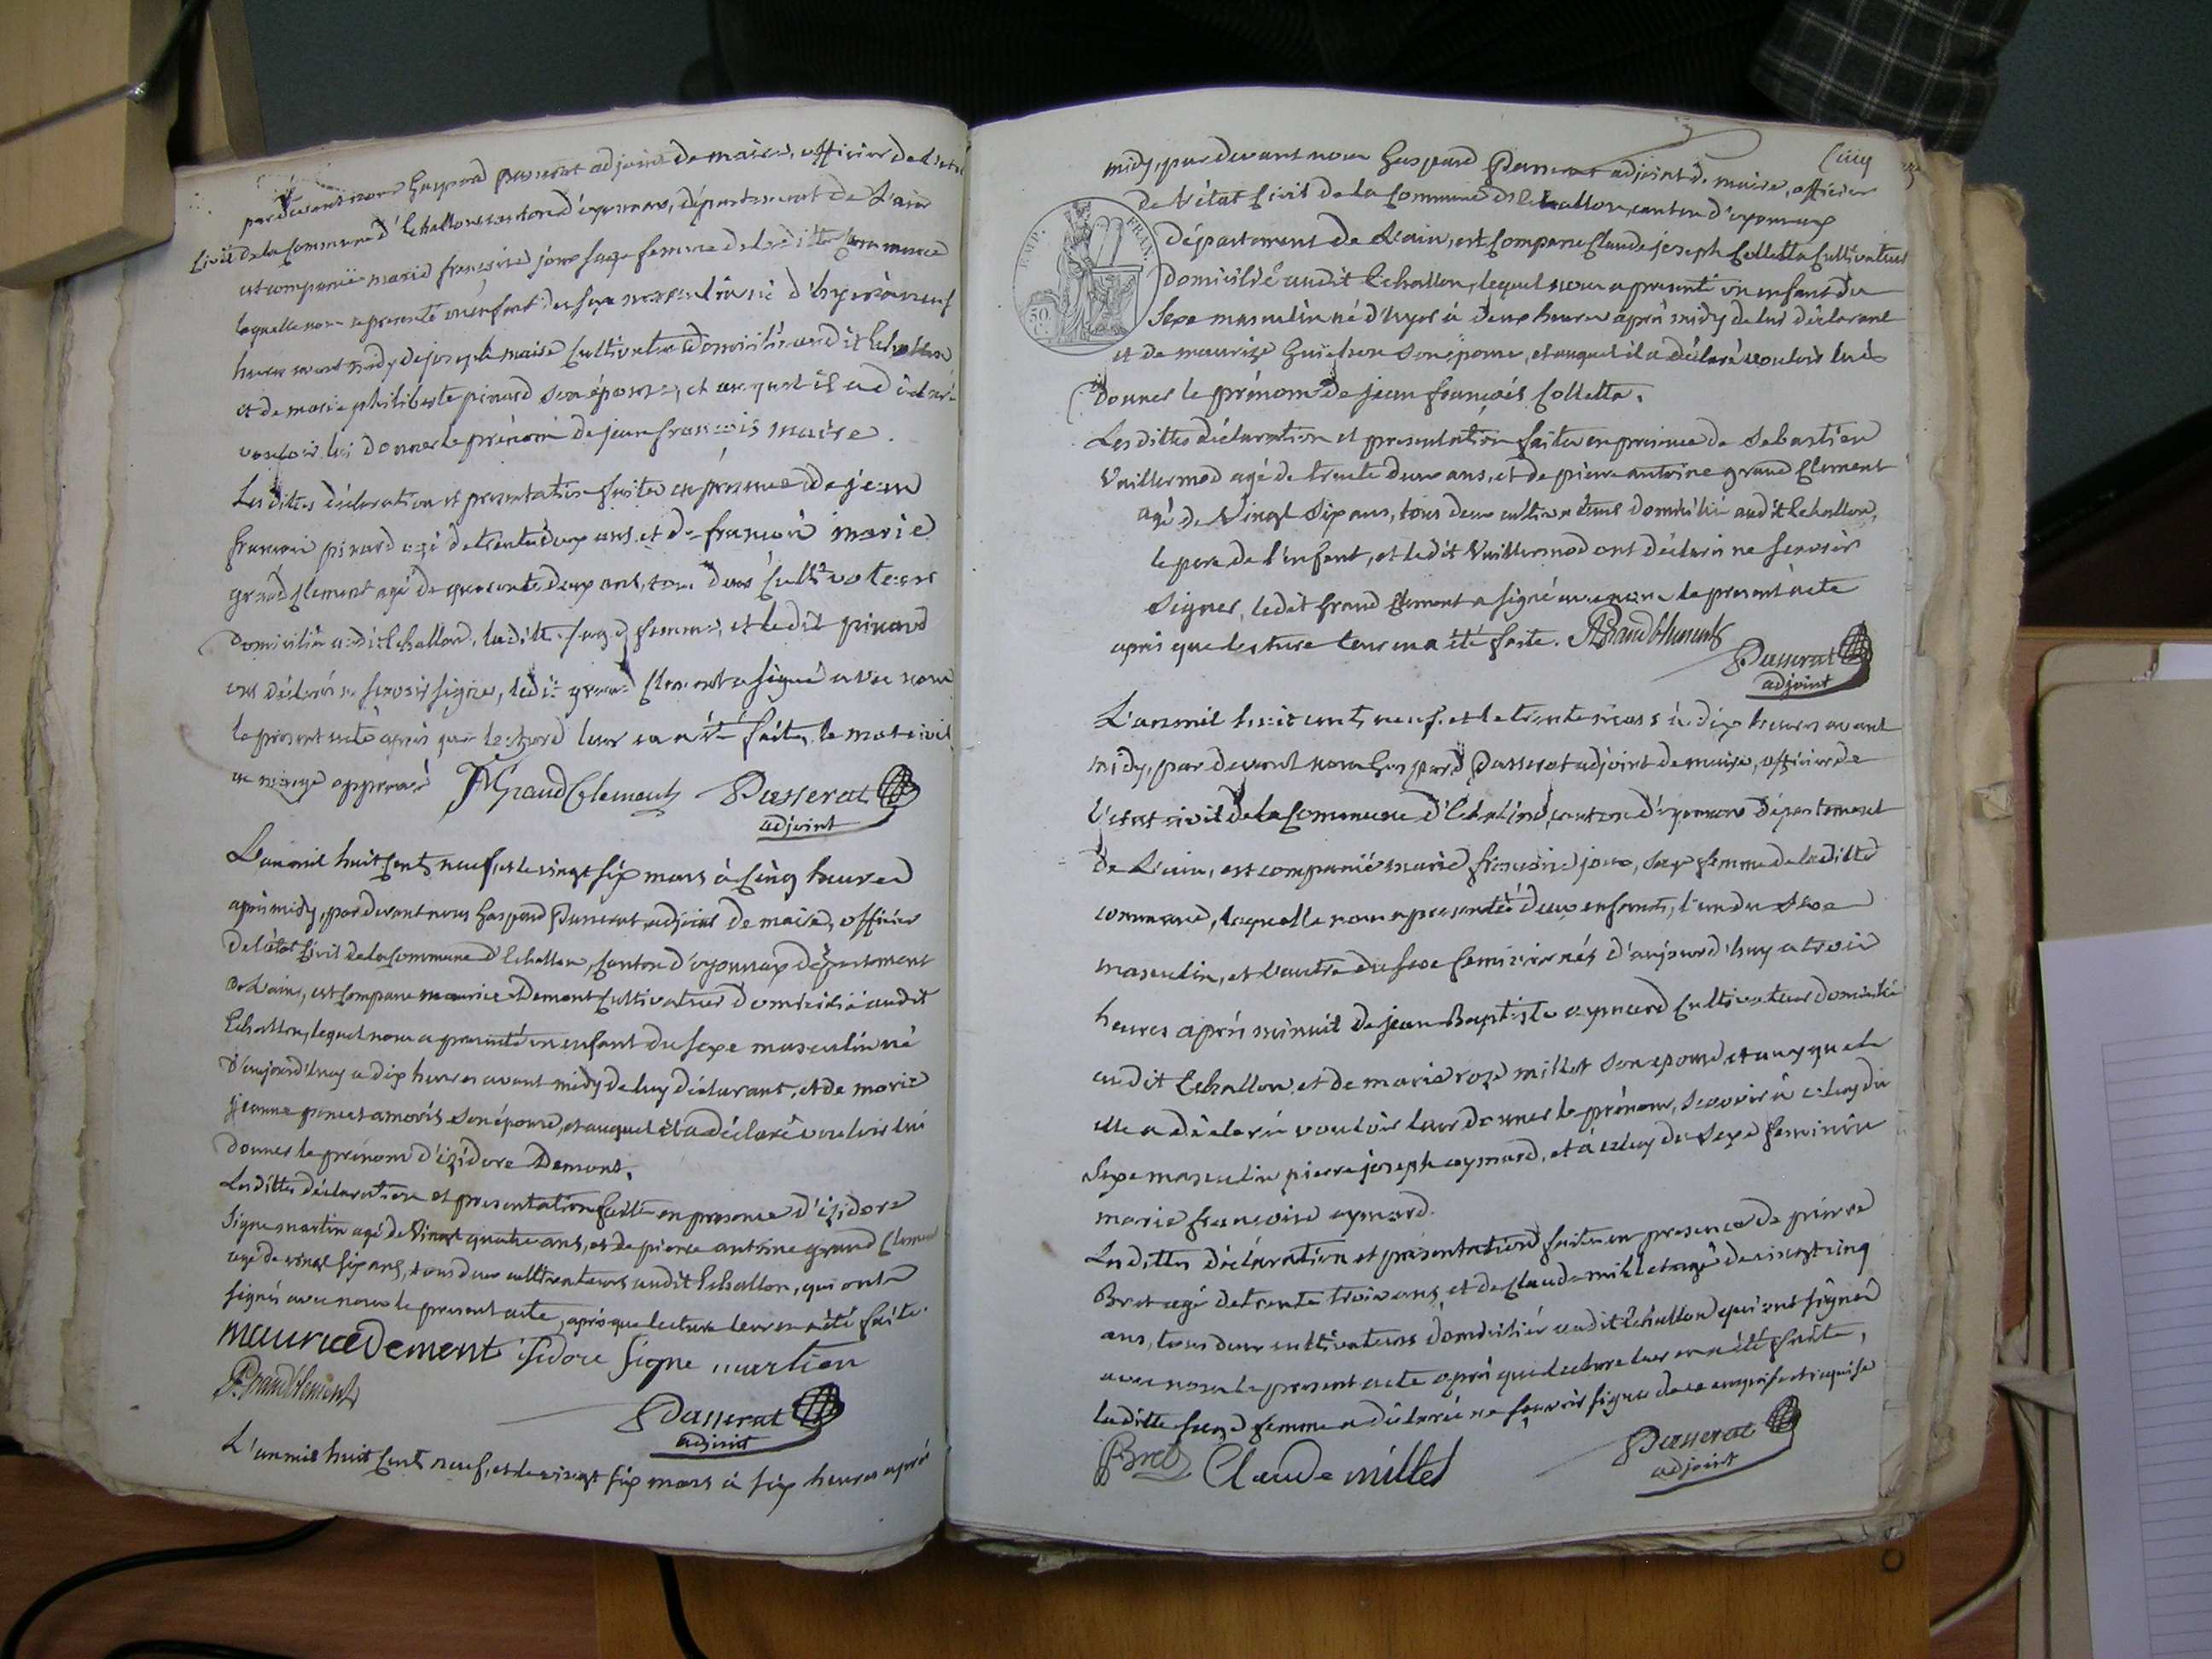 par devant nous Gaspard Passerat adjoint de maire, officier de l'état
Civil de la Commune d'Echallon canton d'oyonnax, département de L'ain
est comparüe marie françoise joux sage femme de la ditte Commune
laquelle nous a presenté un enfant du sexe masculin né d'hyer à neuf
heures avant midy de joseph maire Cultivateur domicilié audit Echallon
et de marie philiberte pinard son épouse, et auquel il a déclaré
vouloir lui donner le prénom de jean françois maire.
Les dittes déclaration et presentation faites en présence de jean
françois pinard agé de trente deux ans, et de françois marie
grand Clement agé de quarente deux ans, tous deux Cultivateurs
domiciliés audit Echallon, laditte sage femme, et ledit pinard
ont déclaré ne sçavoir signer, ledit grand Clement a signé avec nous
le present acte après que lecture leur en a été faite, le mot civil
en marge approuvé JMGrandClement Passerat
adjoint
L'an mil huit Cent neuf, et le vingt six mars à Cinq heures
après midy, par devant nous Gaspard Passerat adjoint de maire, officier
de l'état Civil de la Commune d'Echallon, Canton d'oyonnax département
de L'ain, est Comparu maurice Demont Cultivateur domicilié audit
Echallon, lequel nous a presenté un enfant du sexe masculin né
d'aujourd'huy a dix heures avant midy de luy déclarant, et de marie
jeanne poncet amoris son épouse, et auquel il a déclaré vouloir lui
donner le prénom d'izidore Demont.
Les dittes déclaration et presentation faitte en presence d'izidore
Signe martin agé de Vingt quatre ans, et de pierre antoine grand Clement
agé de vingt six ans, tous deux cultivateurs audit Echallon, qui ont
signés avec nous le present acte, après que lecture leur en a été faite.
maurice Dement isidore signe martien
PGrandClement
Passerat
adjoint
L'an mil huit Cent neuf, et le vingt six mars à six heures après
midy, par devant nous Gaspard Passerat adjoint de maire, officier
de l'état Civil de la Commune d'Echallon, canton d'oyonnax
EMP. FRAN.
50
département de L'ain, est Comparu Claude joseph Colletta Cultivateur
domicilié audit Echallon, lequel nous a presenté un enfant du
Sexe masculin né d'hyer à deux heures après midy de lui déclarant
et de maurize Guichon son épouse, et auquel il a déclaré vouloir lui
donner le prénom de jean françois Colletta.
Les dittes déclaration et presentation faites en presence de Sebastien
Vuillermod agé de trente deux ans, et de pierre antoine grand Clement
agé de Vingt Six ans, tous deux cultivateurs domicilié audit Echallon,
le pere de l'enfent, et ledit Vuillermod ont déclaré ne scavoir
signer, ledit Grand Clement a signé avec nous le present acte
après que lecture leur en a été faite. PGrandClement
Passerat
adjoint
L'an mil huit cent neuf, et le trente mars à dix heures avant
midy, par devant nous Gaspard Passerat adjoint de maire, officier de
l'état civil de la Commune d'Echalond, canton d'oyonnax département
de L'ain, est comparüe marie françoise joux, sage femme de laditte
commune, laquelle nous a presentée deux enfants, l'un du sexe
masculin, et l'autre du sexe feminin nés d'aujourd'huy a trois
heures après minuit de jean Baptiste aymard Cultivateur domicilié
audit Echallon, et de marie roze millet son epouse, et auxquels
elle a déclaré vouloir leur donner le prénom, Scavoir à celuy du
Sexe masculin pierre joseph aymard, et à celuy du Sexe feminin
marie françoise aymard.
Les dittes déclaration et présentation faites en presence de pierre
Bret agé de trente trois ans, et de Claude millet agé de vingt cinq
ans, tous deux cultivateurs domiciliés audit Echallon qui ont signé
avec nous le present acte après que lecture leur en a été faite,
laditte sage femme a déclaré ne sçavoir signer de ce enquise et requise
PBret Claude millet Passerat
adjoint